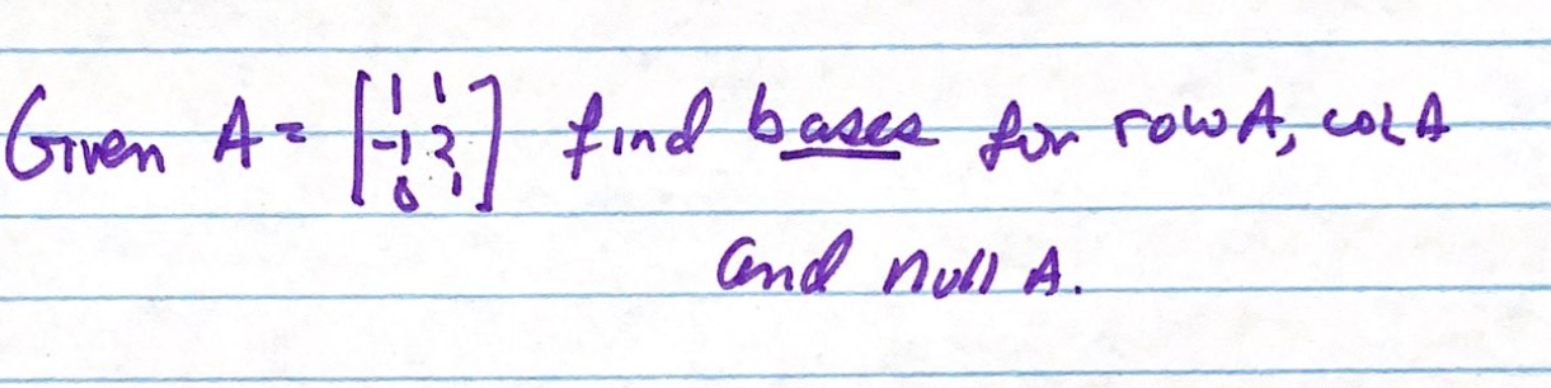 Given A = [1 1; -1 2; 0 1] find bases for row A, col A
and null A.